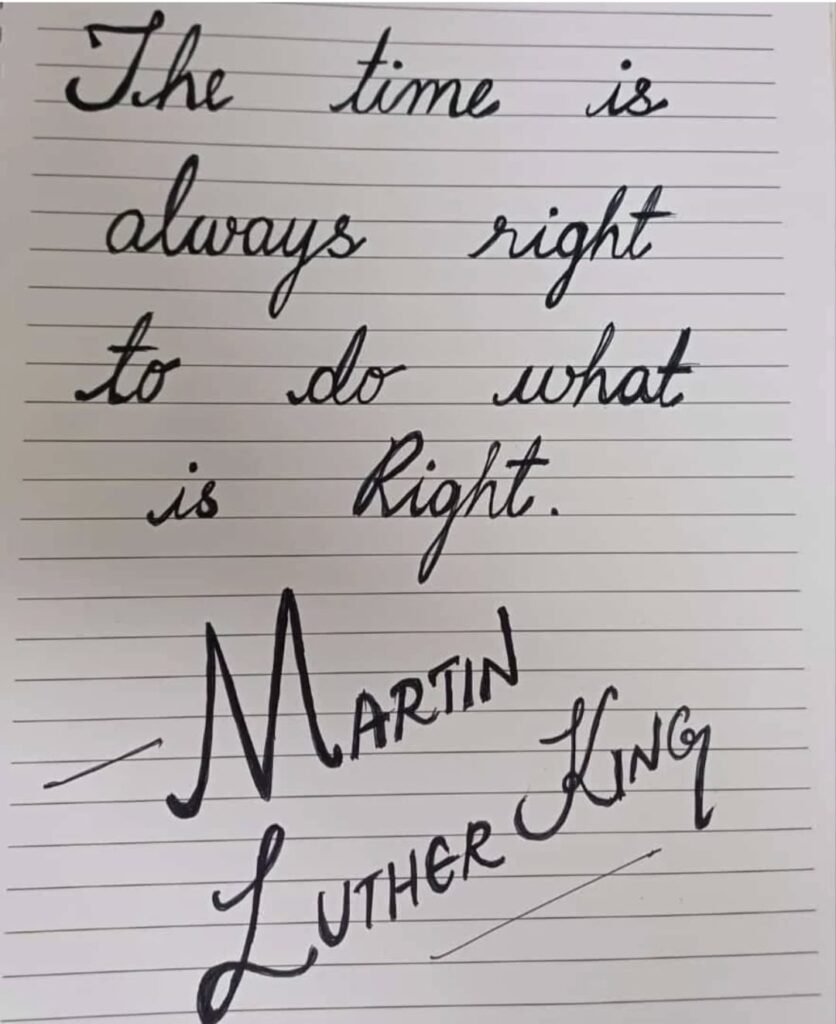 The time is
always right
to do what
is Right.
— MARTIN
LUTHER KING